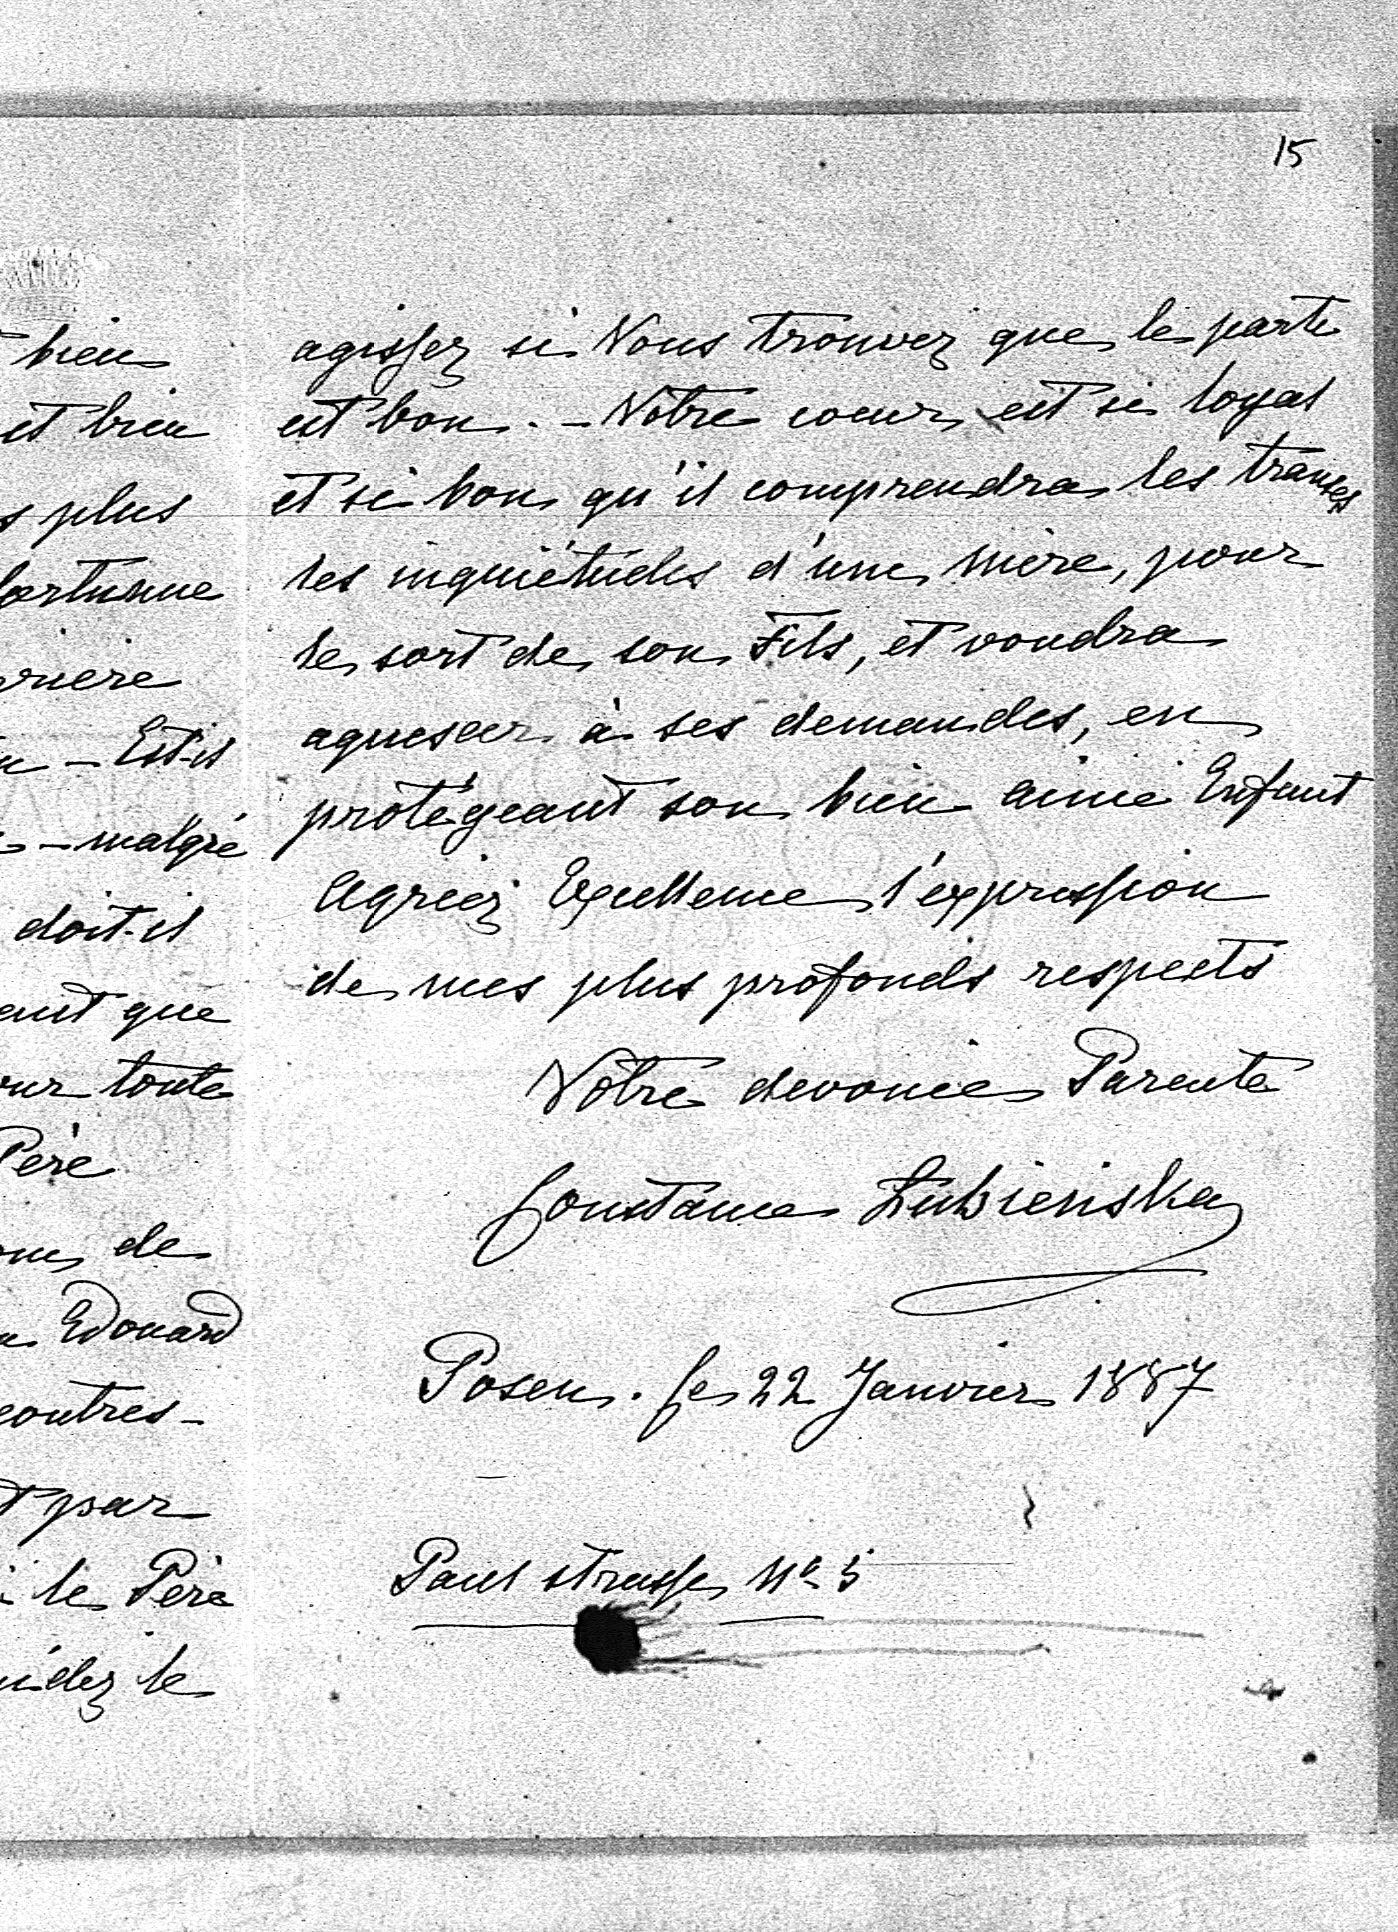 15
bien
et bien
s plus
fortunne
rriere
Est-il
malgré
doit-il
ant que
our toute
Père
de
Edouard
contres-
t par
le Père
uidez le
agissez si Vous trouvez que le parti
est bon. - Votre coeur est si loyal
et si bon qu'il comprendra les transes
les inquiétudes d'une mère, pour
le sort de son Fils, et voudra
aquiescer à ses demandes, en
protégeant son bien aimé Enfant
Agréez Excellence l'expression
de mes plus profonds respects
Votre devouée Parente
Constance Łubieńska
Posen. le 22 Janvier 1887
Paul strasse No 5